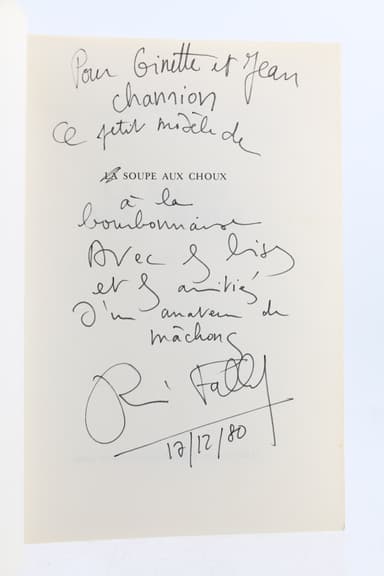 Pour Ginette et Jean
Ce petit modèle de
LA SOUPE AUX CHOUX
à la
bourbonnaise
Avec les bises
et les amitiés
d'un amateur de
mâchons
René Fallet
17/12/80